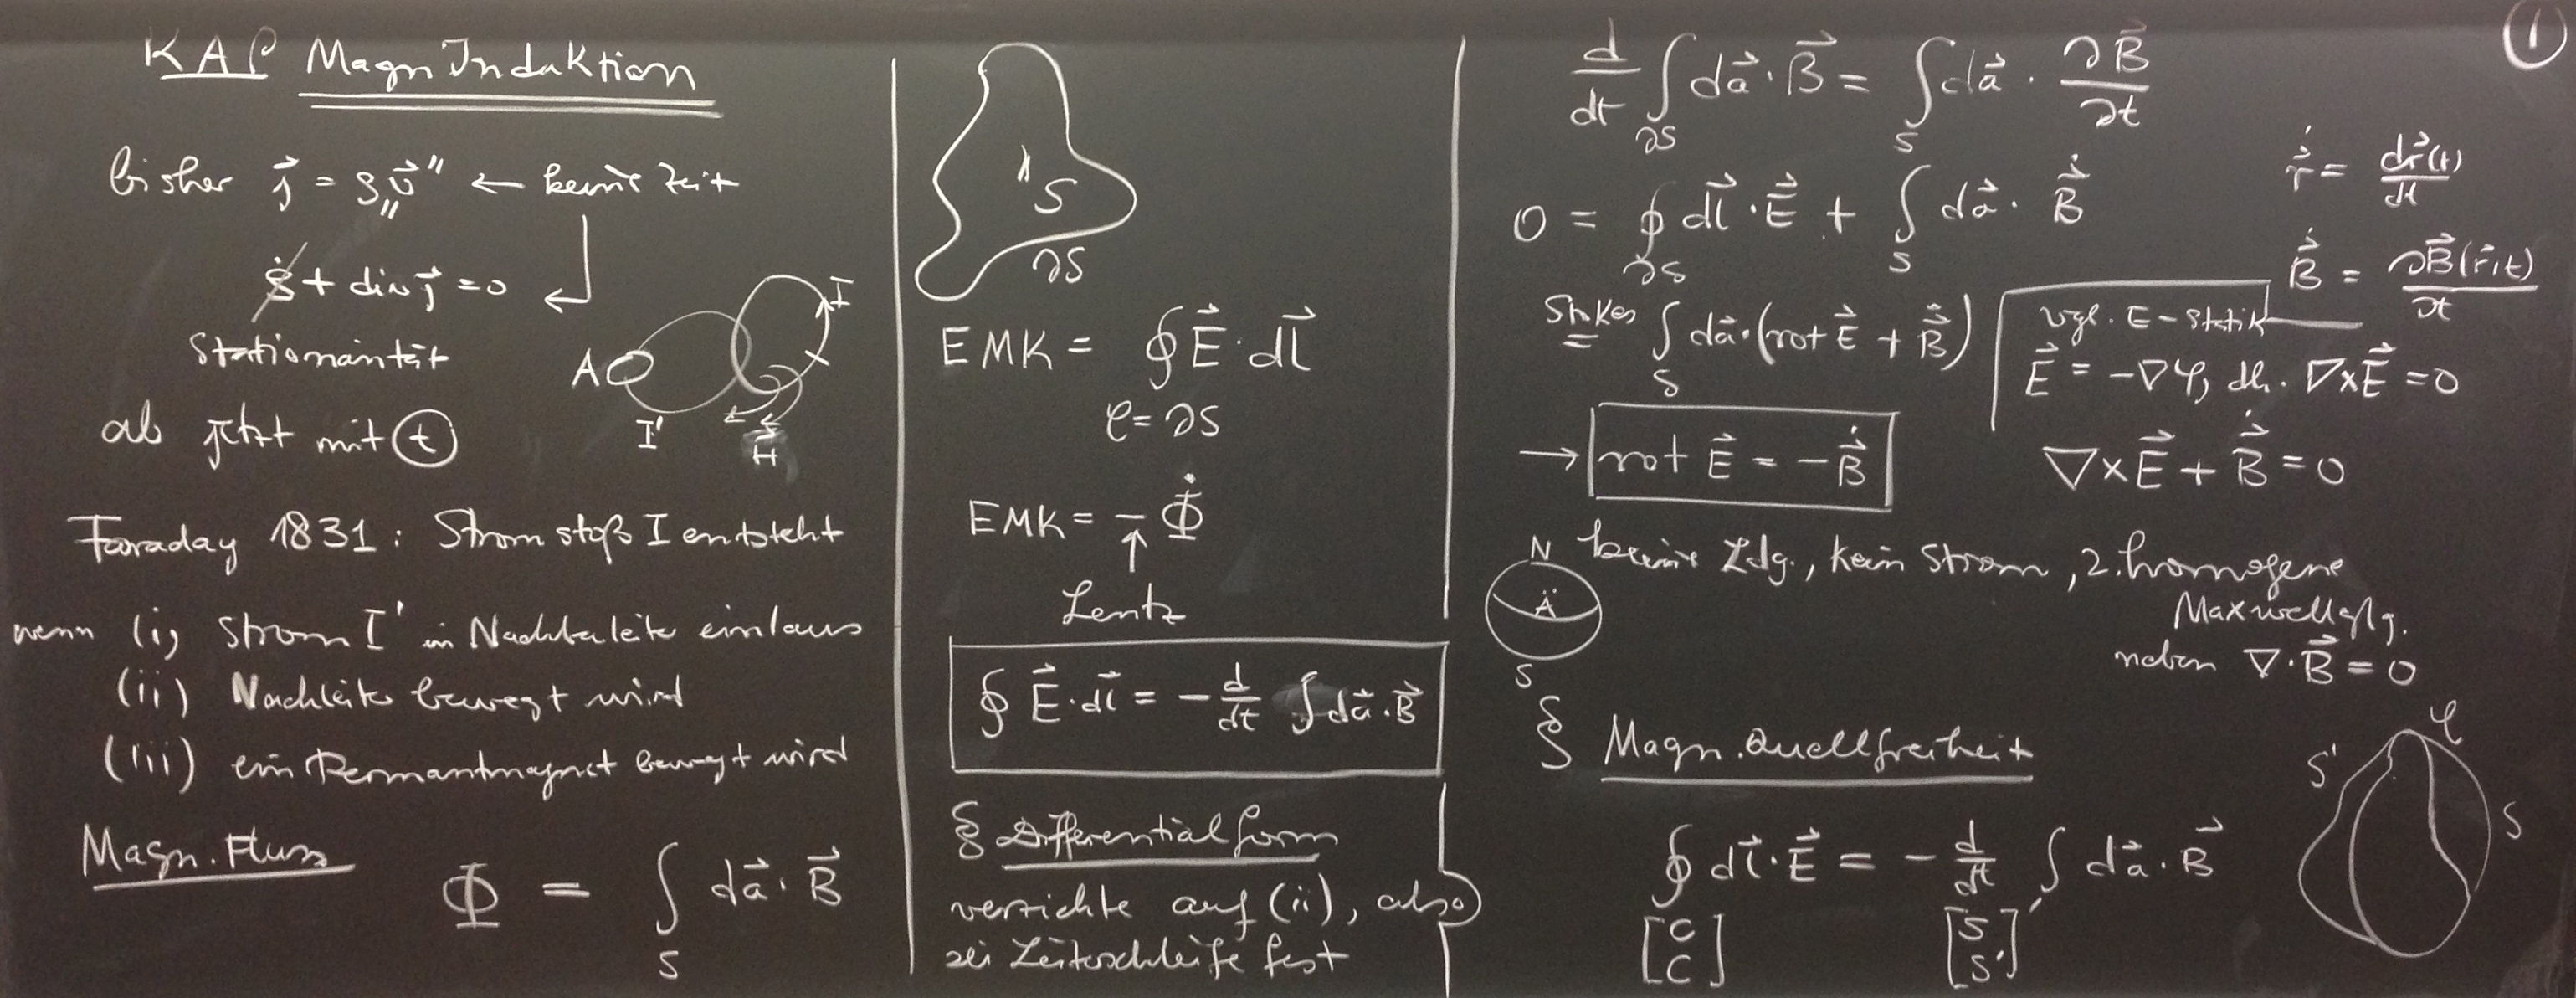 KAP Magn Induktion
bisher "j⃗ = ρ v⃗" ← keine Zeit
ρ̇ + div j⃗ = 0
Stationarität
A I
I' H
ab jetzt mit t
Faraday 1831: Stromstoß I entsteht
wenn (i) Strom I' in Nachbarleiter
(ii) Nachleiter bewegt wird
(iii) ein Permantmagnet bewegt wird
Magn. Fluss
Φ = ∫_S da⃗ · B⃗
S
∂S
EMK = ∮ E⃗ · dl⃗
C = ∂S
EMK = − Φ̇
↑
Lentz
∮ E⃗ · dl⃗ = − d/dt ∫ da⃗ · B⃗
§ Differentialform
verzichte auf (ii), also
sei Leiterschleife fest
1
d/dt ∫_∂S da⃗ · B⃗ = ∫_S da⃗ · ∂B⃗/∂t
0 = ∮_∂S dl⃗ · E⃗ + ∫_S da⃗ · B⃗̇
Stokes = ∫_S da⃗ · (rot E⃗ + B⃗̇)
→ rot E⃗ = − B⃗̇
r⃗̇ = dr⃗(t)/dt
B⃗̇ = ∂B⃗(r⃗,t)/∂t
vgl. E-Statik
E⃗ = −∇φ, dh. ∇×E⃗ = 0
∇×E⃗ + B⃗̇ = 0
keine Ldg., kein Strom, 2. homogene
Maxwellglg.
neben ∇·B⃗ = 0
N
Ä
S
§ Magn. Quellfreiheit
∮ dl⃗ · E⃗ = − d/dt ∫ da⃗ · B⃗
[C C] [S S']
C
S'
S